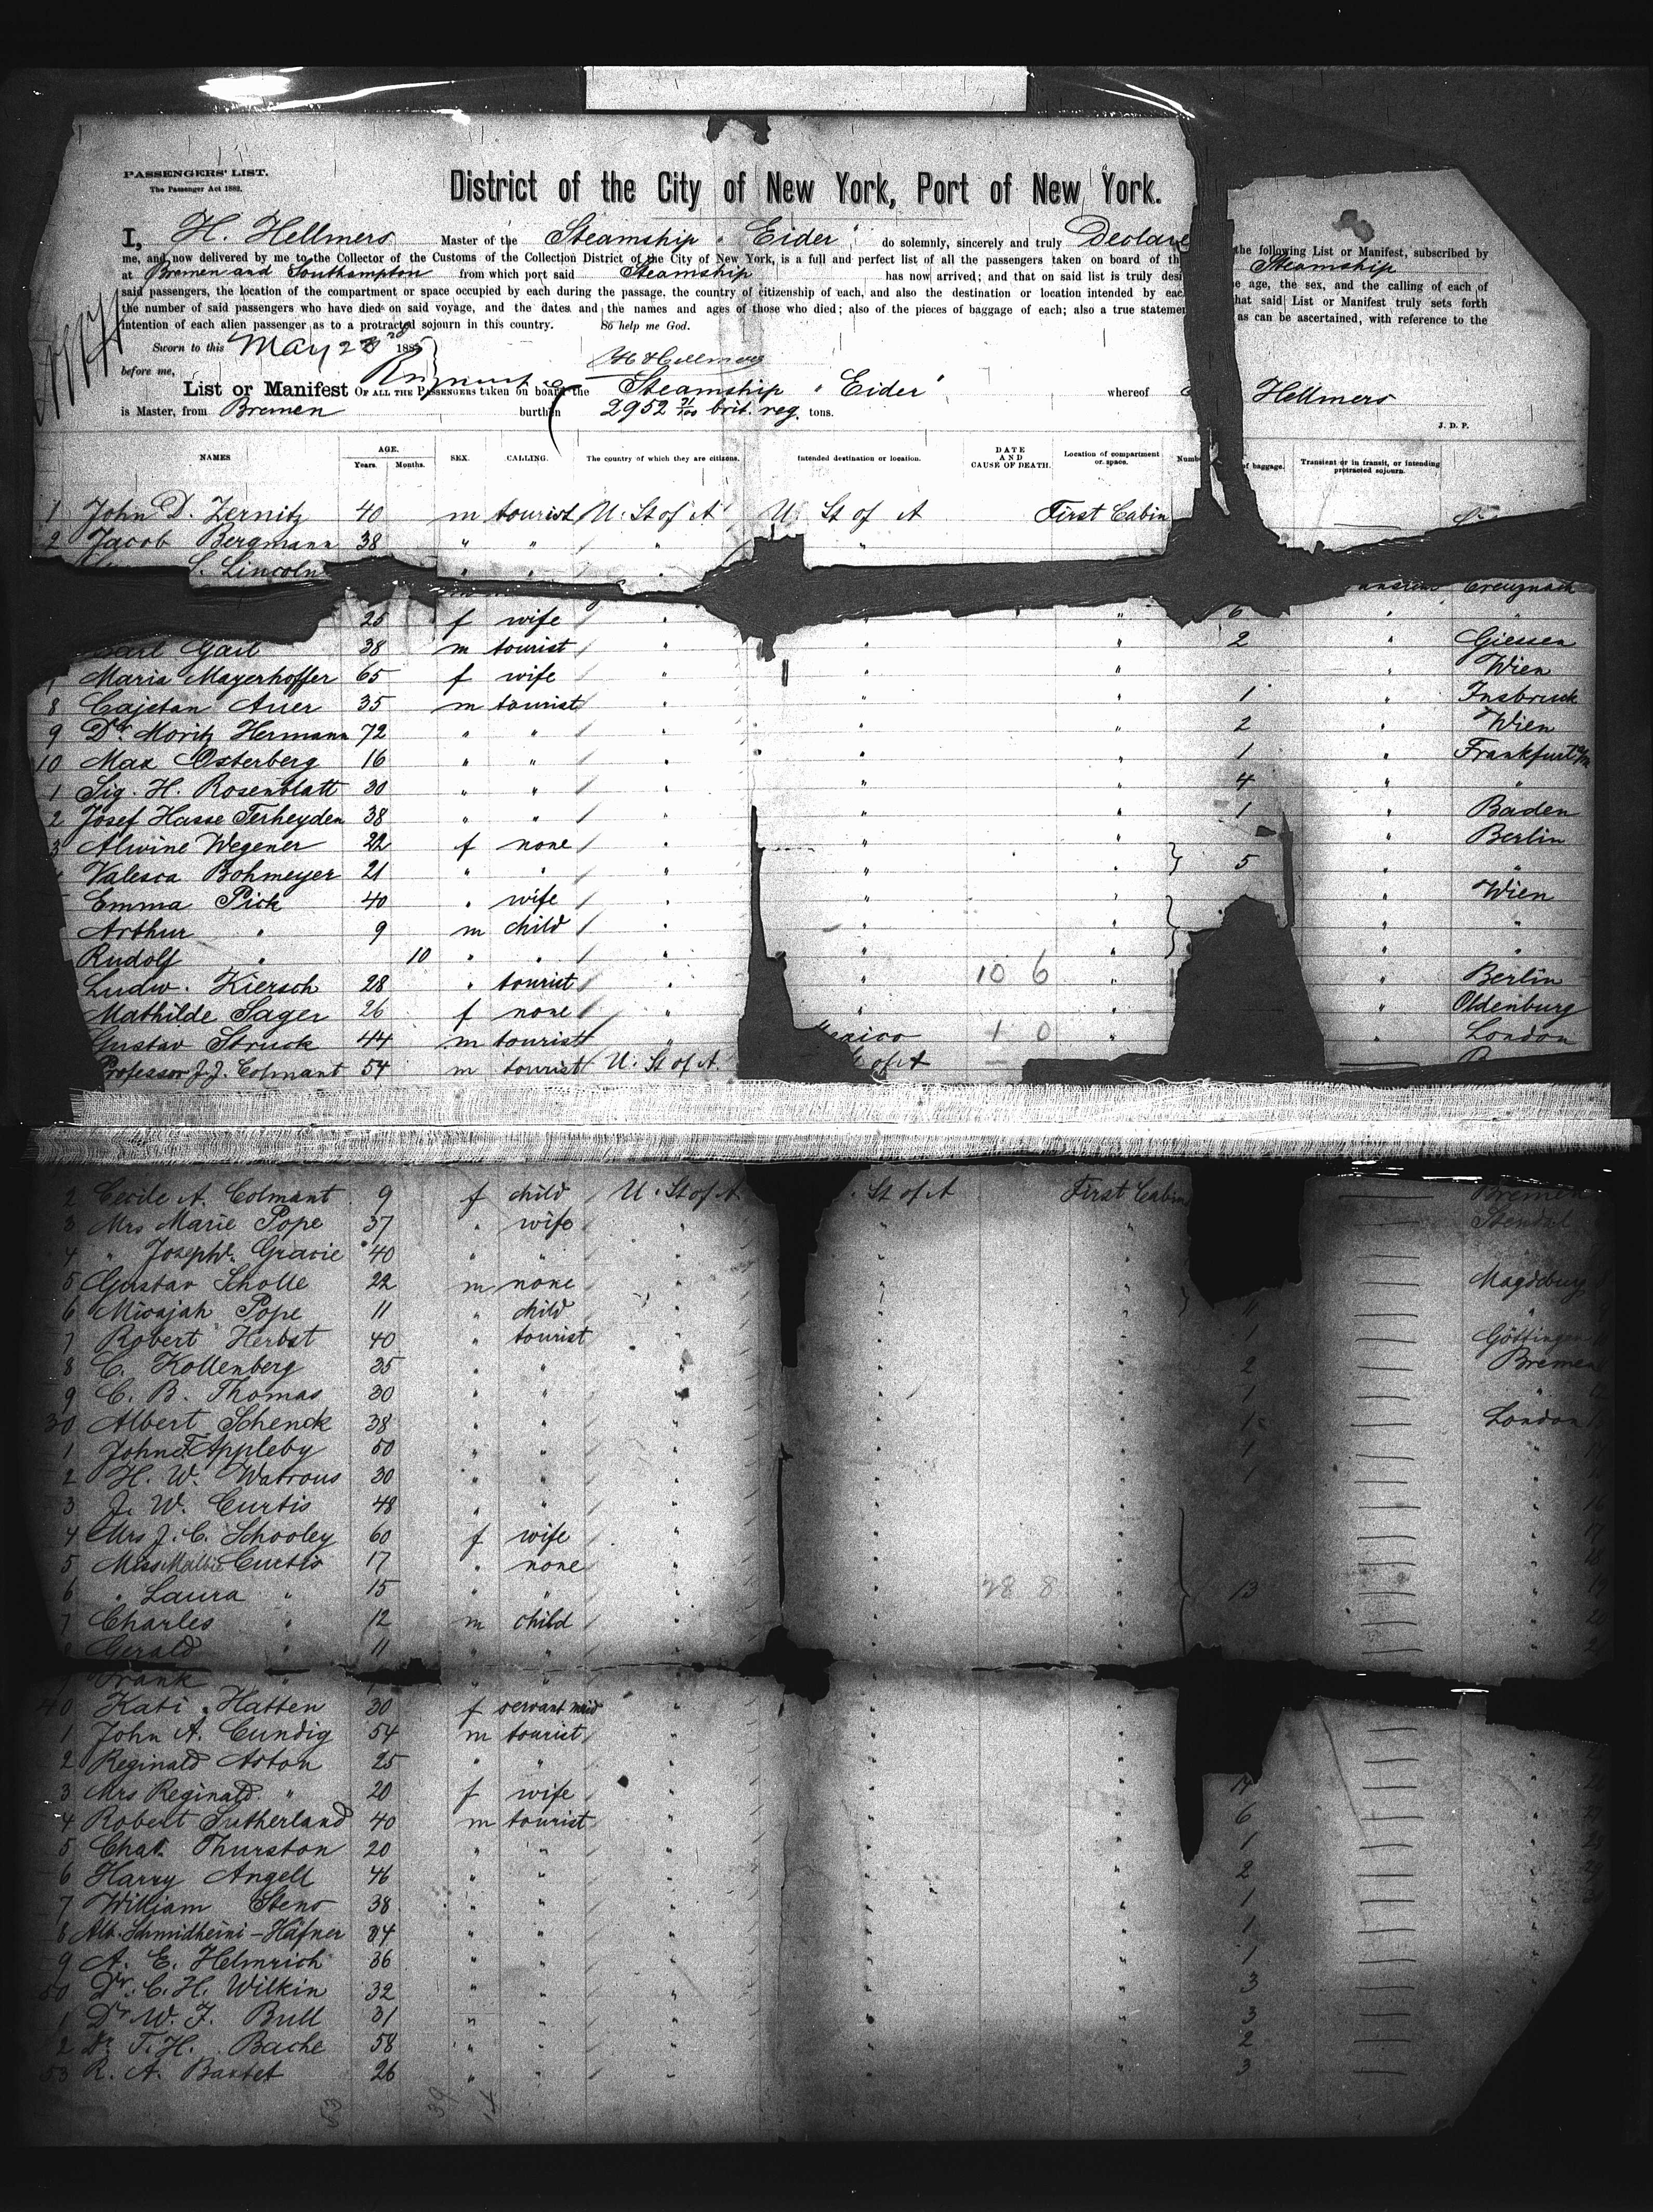 PASSENGERS' LIST.
The Passenger Act 1882.
District of the City of New York, Port of New York.
I, H. Hellmers Master of the Steamship "Eider" do solemnly, sincerely and truly Declare the following List or Manifest, subscribed by
me, and now delivered by me to the Collector of the Customs of the Collection District of the City of New York, is a full and perfect list of all the passengers taken on board of the Steamship
at Bremen and Southampton from which port said Steamship has now arrived; and that on said list is truly age, the sex, and the calling of each of
said passengers, the location of the compartment or space occupied by each during the passage, the country of citizenship of each, and also the destination or location intended by each that said List or Manifest truly sets forth
the number of said passengers who have died on said voyage, and the dates and the names and ages of those who died; also of the pieces of baggage of each; also a true statement as can be ascertained, with reference to the
intention of each alien passenger as to a protracted sojourn in this country. So help me God.
Sworn to this May 23rd 188
before me, H Hellmers
List or Manifest OF ALL THE PASSENGERS taken on board the Steamship "Eider" whereof Hellmers
is Master, from Bremen burthen 2952 brit. reg. tons.
J. D. P.
NAMES AGE. Years. Months. SEX. CALLING. The country of which they are citizens. Intended destination or location. DATE AND CAUSE OF DEATH. Location of compartment or space. of baggage. Transient or in transit, or intending protracted sojourn.
1 John D. Zernitz 40 m tourist U. St of A U. St of A First Cabin
2 Jacob Bergmann 38 " " " "
S. Lincoln " " "
Creuznach
25 f wife " " " 6 " "
Carl Gail 38 m tourist " " " 2 " Giessen
Maria Mayerhoffer 65 f wife " " " " Wien
8 Cajetan Auer 35 m tourist " " " 1 " Insbruck
9 Dr. Moritz Hermann 72 " " " " " 2 " Wien
10 Max Osterberg 16 " " " " " 1 " Frankfurt a/m
1 Sig. H. Rosenblatt 30 " " " " " 4 " "
2 Josef Hasse Terheyden 38 " " " " " 1 " Baden
3 Alwine Wegener 22 f none " " " " Berlin
Valesca Bohmeyer 21 " " " " " 5 " "
Emma Pick 40 " wife " " " " Wien
Arthur " 9 m child " " " " "
Rudolf " 10 " " " " " " "
Ludw. Kiersch 28 " tourist " " 10 6 " " Berlin
Mathilde Sager 26 f none " " " " Oldenburg
Gustav Struck 44 m tourist 1 0 " " London
Professor J. J. Colmant 54 m tourist U. St of A. of A
2 Cecile A. Colmant 9 f child U. St of A. St of A First Cabin Bremen
3 Mrs Marie Pope 37 " wife " " " Stendal
4 " Josephe. Gracie 40 " " " " "
5 Gustav Scholle 22 m none " " " Magdeburg
6 Micajah Pope 11 " child " " " "
7 Robert Herbst 40 " tourist " " " 1 Göttingen
8 C. Kollenberg 35 " " " " " 2 Bremen
9 C. B. Thomas 30 " " " " " 1 "
30 Albert Schenck 38 " " " " " 1 London
1 John F. Appleby 50 " " " " " 1 "
2 H. W. Watrous 30 " " " " " 1 "
3 J. W. Curtis 48 " " " " " "
4 Mrs J. C. Schooley 60 f wife " " " "
5 Miss Mallie Curtis 17 " none " " " "
6 " Laura " 15 " " " " 28 8 " 13 "
7 Charles " 12 m child " " " "
8 Gerald " 11 " " " " " "
9 Frank " " "
40 Kati Hatten 30 f servant maid " " "
1 John A. Cundig 54 m tourist " " "
2 Reginald Aston 25 " " " " " "
3 Mrs Reginald " 20 f wife " " " 14 "
4 Robert Sutherland 40 m tourist " " " 6 "
5 Chas. Thurston 20 " " " " " 1 "
6 Harry Angell 46 " " " " " 2 "
7 William Steno 38 " " " " " 1 "
8 Alb. Schmidheini-Häfner 34 " " " " " 1 "
9 A. E. Helmrich 36 " " " " " 1
50 Dr. C. H. Wilkin 32 " " " " " 3
1 Dr. W. F. Bull 31 " " " " " 3
2 Dr T. H. Bache 58 " " " " " 2
53 R. A. Bartet 26 " " " " " 3
53 39 14